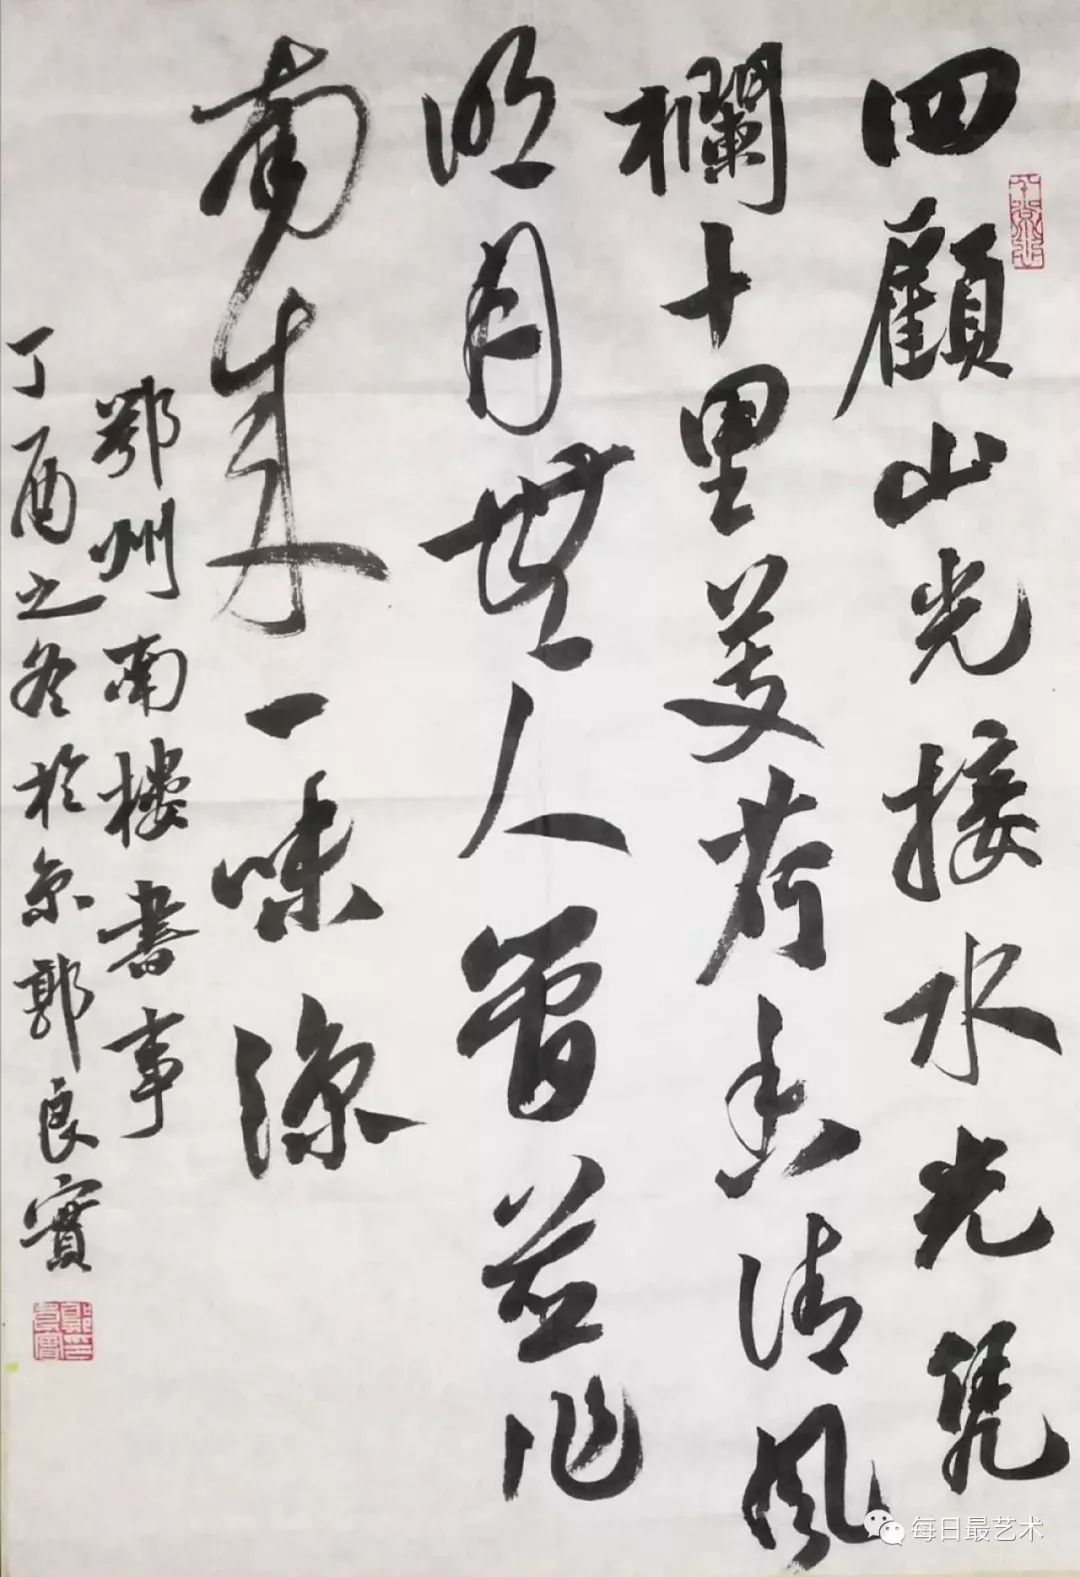 四顧山光接水光凭
欄十里芰荷香清風
明月無人管並作
南來一味涼
鄂州南樓書事
丁酉之冬於京郭良實
每日最艺术